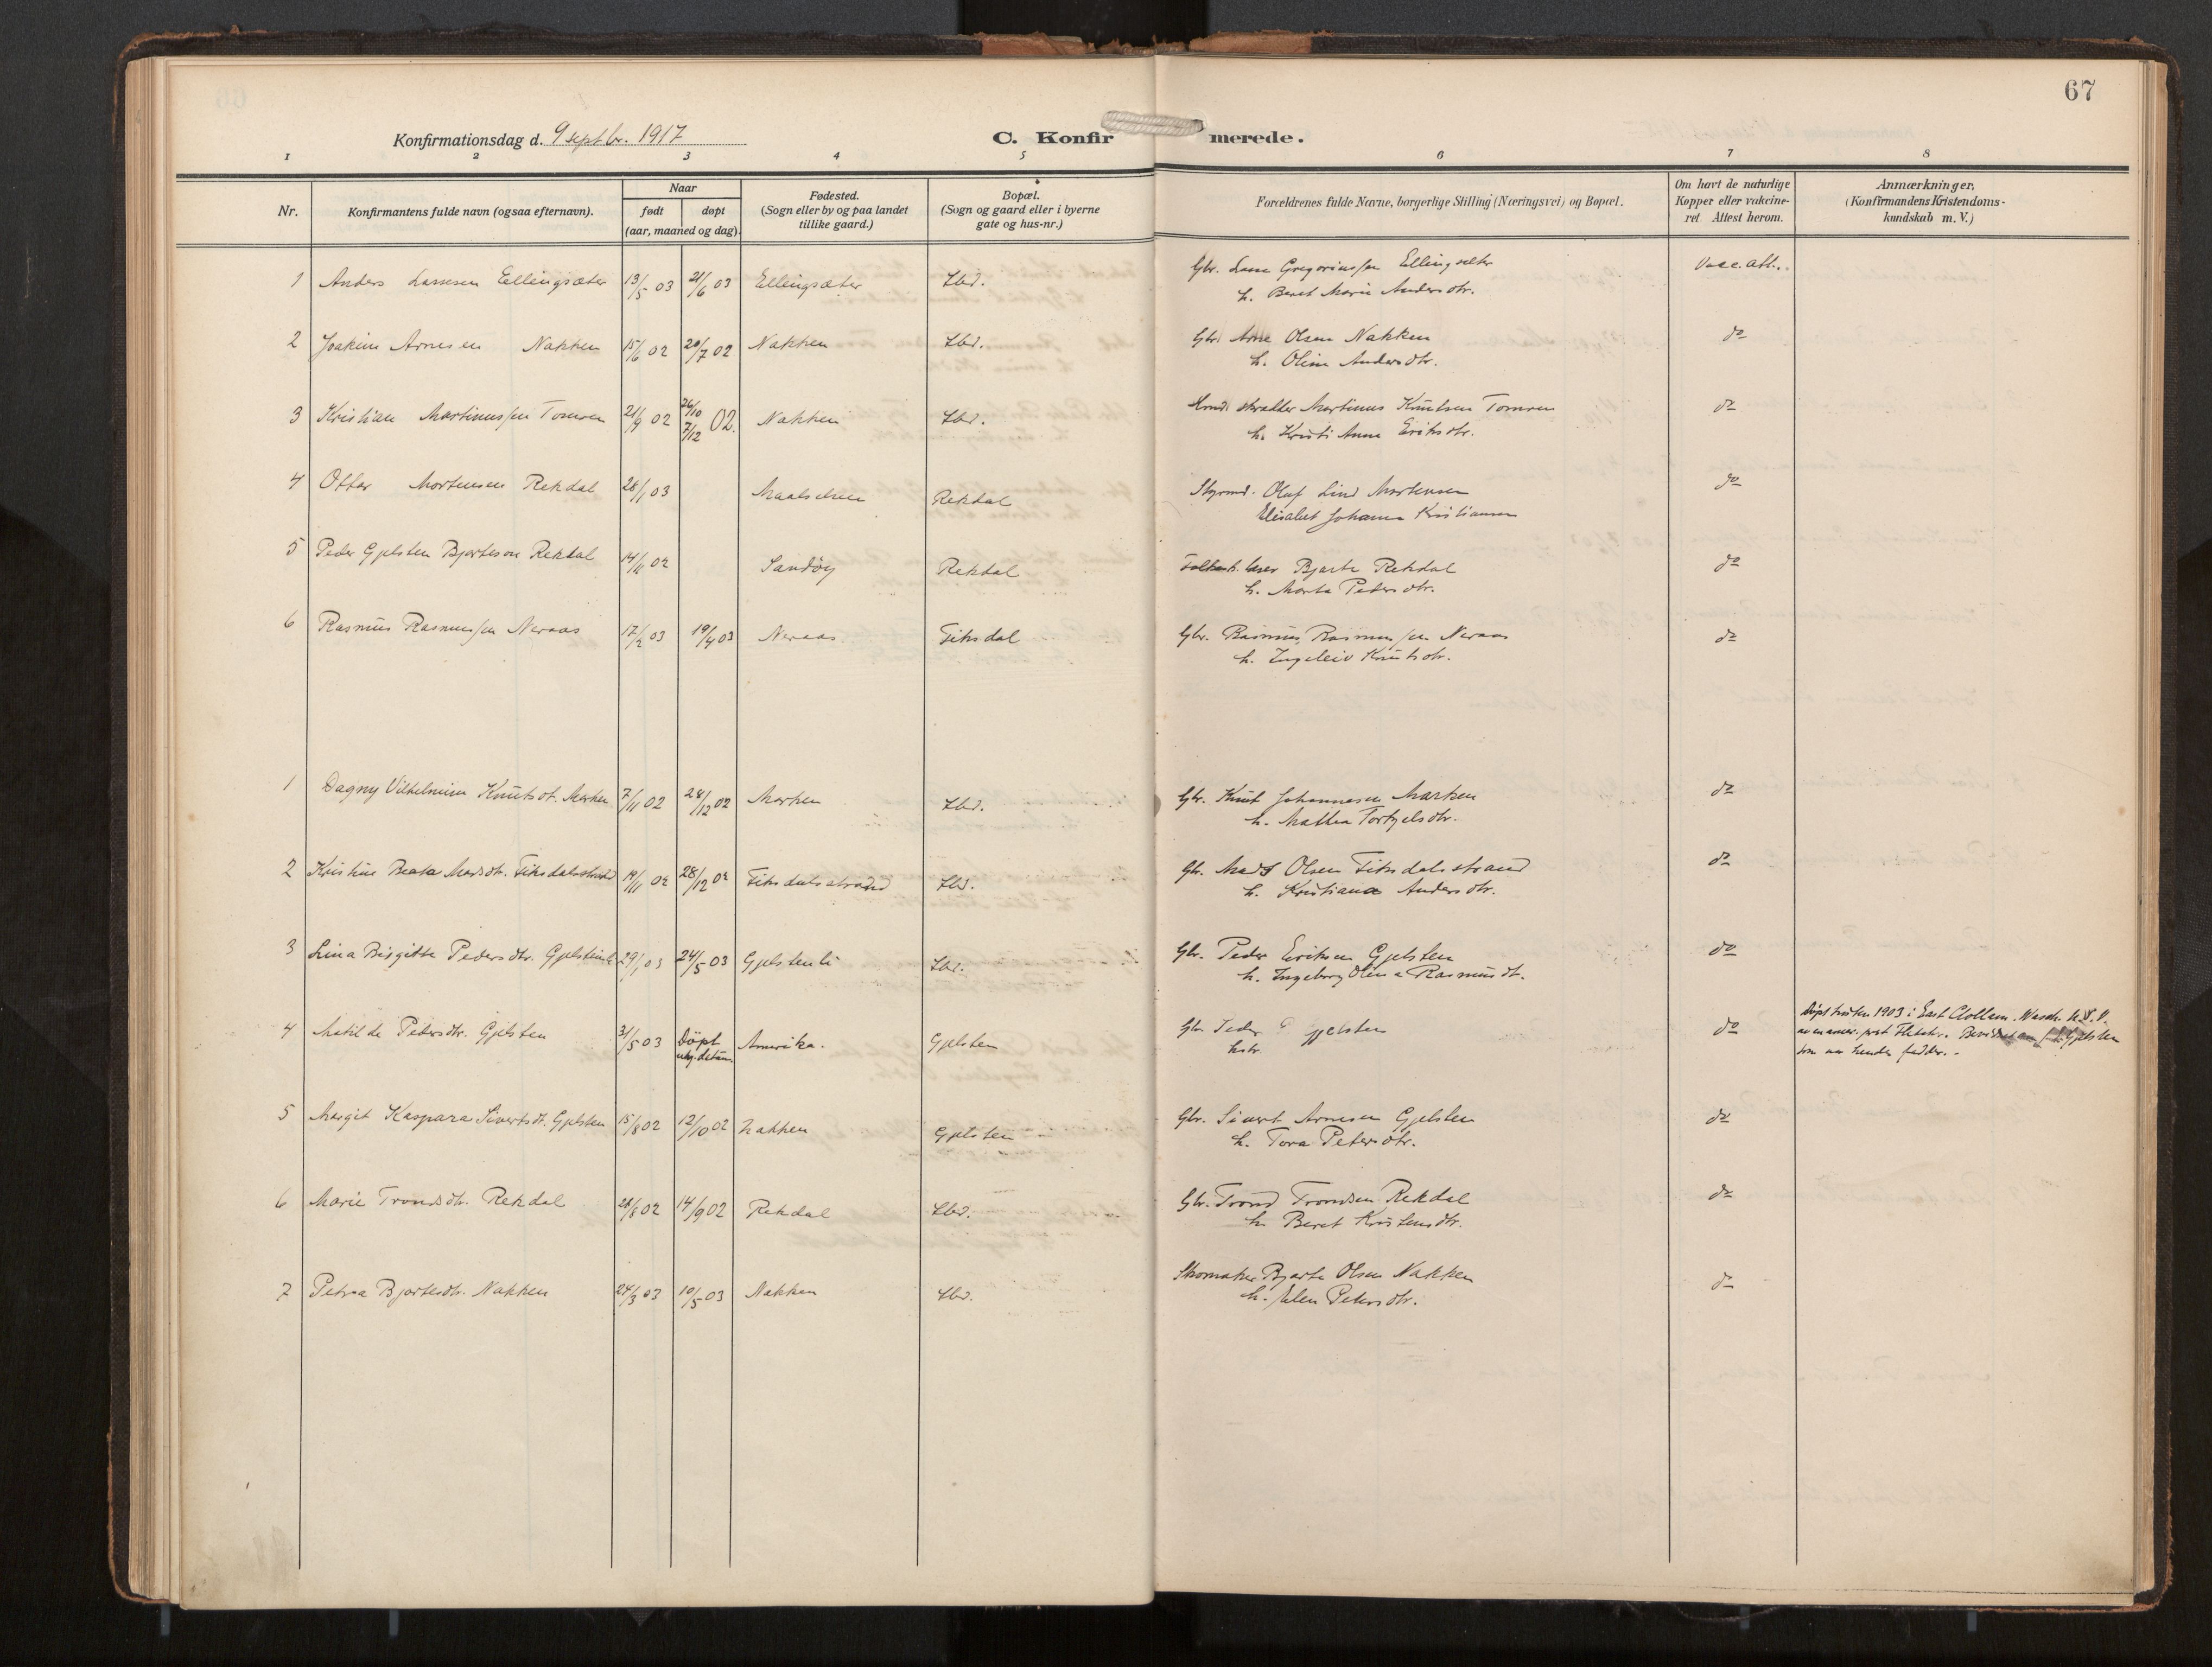 67
Konfirmationsdag d. 9 septbr. 1917
C. Konfirmerede.
1 2 3 4 5 6 7 8
Nr.
Konfirmantens fulde navn (ogsaa efternavn).
Naar
født døpt
(aar, maaned og dag).
Fødested.
(Sogn eller by og paa landet
tillike gaard.)
Bopæl.
(Sogn og gaard eller i byerne
gate og hus-nr.)
Forældrenes fulde Navne, borgerlige Stilling (Næringsvei) og Bopæl.
Om havt de naturlige
Kopper eller vakcine-
ret. Attest herom.
Anmærkninger.
(Konfirmandens Kristendoms-
kundskab m. V.)
1 Anders Larssen Ellingsæter 13/5 03 21/6 03 Ellingsæter Ibid. Gbr. Lars Gregoriussen Ellingsæter Vacc. att.
h. Beret Marie Andersdtr.
2 Joakim Arnesen Nakken 15/6 02 20/7 02 Nakken Ibid. Gbr. Arne Olsen Nakken do
h. Olina Andersdtr.
3 Kristian Martinussen Tomren 21/9 02 26/10 7/12 02. Nakken Ibid. Martinus Knutsen Tomren do
h. Kristi Anna Eriksdtr.
4 Otter Mortensen Rekdal 28/1 03 Maalselven Rekdal Styrmd. Oluf Lind Mortensen do
Elisabet Johanna Kristiansen
5 Peder Gjelsten Bjarteson Rekdal 14/11 02 Sandöy Rekdal Bjarte Rekdal do
h. Marta Petersdtr.
6 Rasmus Rasmussen Neraas 17/2 03 19/4 03 Neraas Fiksdal Gbr. Rasmus Rasmussen Neraas do
h. Ingeleiv Knutsdtr.
1 Dagny Vilhelmine Knutsdt. Marken 7/11 02 28/12 02 Marken Ibid. Gbr. Knut Johannesen Marken do
h. Mathea Torkjelsdtr.
2 Kristine Beata Madsdtr. Fiksdalstrand 19/11 02 28/12 02 Fiksdalsstrand Ibid. Gbr. Mads Olsen Fiksdalsstrand do
h. Kristiana Andersdtr.
3 Lina Birgitte Pedersdtr. Gjelstenli 29/1 03 24/5 03 Gjelstenli Ibid. Gbr. Peder Eriksen Gjelsten do
h. Ingeborg Olina Rasmusdt.
4 Matilde Pedersdtr. Gjelsten 31/5 03 Döpt Amerika. Gjelsten Gbr. Peder E Gjelsten do Döpt hösten 1903 i East Clallam. Wash. U.S.A.
5 Margit Kaspara Sivertsdt. Gjelsten 15/8 02 12/10 02 Nakken Gjelsten Gbr. Sivert Arnesen Gjelsten do
h. Tora Petersdtr.
6 Marie Trondsdtr. Rekdal 28/8 02 14/9 02 Rekdal Ibid. Gbr. Trond Trondsen Rekdal do
h. Beret Kristensdtr.
7 Petra Bjartesdtr. Nakken 24/3 03 10/5 03 Nakken Ibid. Skomaker Bjarte Olsen Nakken do
h. Elen Petersdtr.